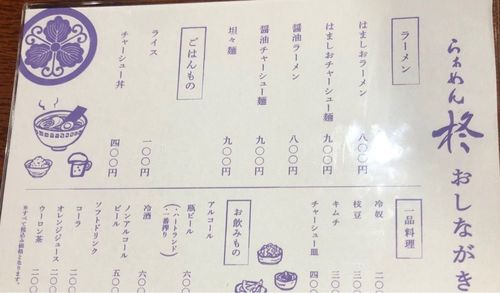 らぁめん 柊 おしながき
ラーメン
はましおラーメン 八〇〇円
はましおチャーシュー麺 九〇〇円
醤油ラーメン 八〇〇円
醤油チャーシュー麺 九〇〇円
坦々麺 九〇〇円
ごはんもの
ライス 一〇〇円
チャーシュー丼 四〇〇円
一品料理
冷奴 二〇
枝豆 三〇
キムチ 三〇〇
チャーシュー皿 四〇
お飲みもの
アルコール
瓶ビール 六〇〇
(・ハートランド
・一番搾り)
冷酒 六〇〇
ノンアルコール
ビール 五〇〇
ソフトドリンク
コーラ 二〇〇
オレンジジュース 二〇〇
ウーロン茶 二〇〇
※すべて税込み価格となります。